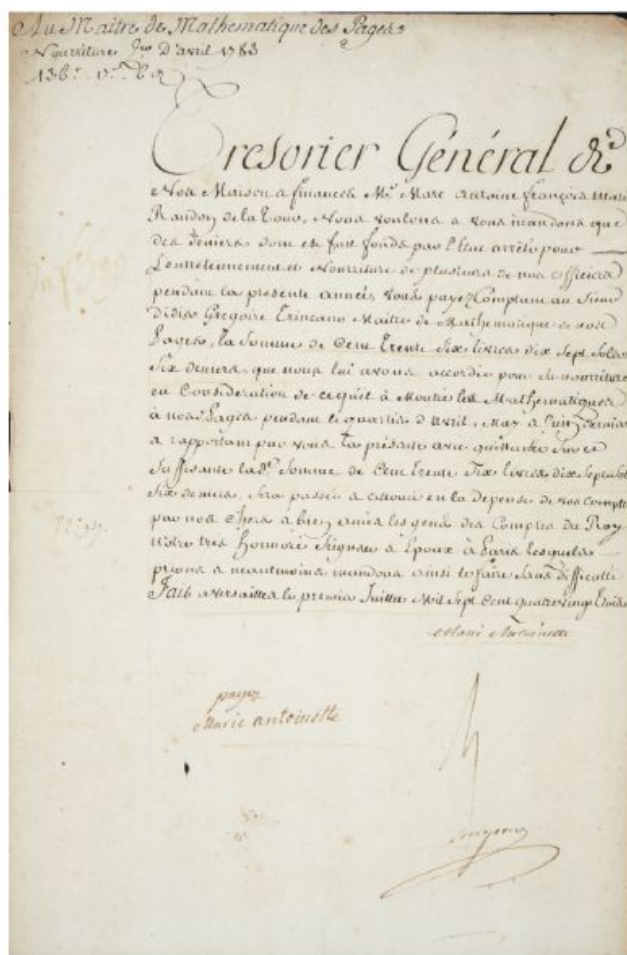 Au Maitre de Mathematique des Pages
Nourriture d'avril 1783
Tresorier Général de
Nos Maison a finances Mr Marc Antoine françois Marie
Randon de la Tour, Nous voulons a vous mandons que
des deniers dont est fait fonds par l'Etat arrêté pour
L'entretennement et Nourriture de plusieurs de nos officiers
pendant la presente année, vous payez Comptant au Sieur
Gregoire Maitre de Mathematique de nos
Pages, la Somme de Cent Trente Six livres dix Sept Sols
Six deniers, que nous lui avons accordée pour sa nourriture
en Consideration de ce qu'il a Montré les Mathematiques
à nos Pages pendant le quartier d'Avril, May a Juin dernier
a rapportant par vous la présente avec quittance Sur ce
Suffisante lad. Somme de Cent Trente Six livres dix Sept Sols
Six deniers, Sera passée a alloué en la depense de vos comptes
par nos Chers a bien amés les gens des Comptes du Roy
Notre tres honnoré Seigneur a Epoux à Paris lesquels
prions a neantmoins mandons ainsi le faire Sans difficulté
Fait a Versailles le premier Juillet Mil Sept Cent quatre vingt Trois
Marie Antoinette
payez
Marie antoinette